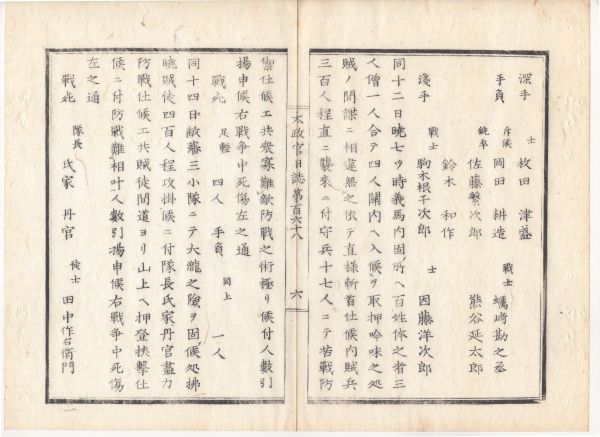 深手
士 枚田 津盛 戰士 蠣崎勘之丞
手負 斥候 岡田 耕造 熊谷延太郎
銃卒 佐藤繁次郎
鈴木 和作
淺手
戰士 駒木根千次郎 士 因藤洋次郎
同十二日曉七ツ時義馬内固所ヘ百姓体之者三
人僧一人合テ四人關内ヘ入候ヲ取押吟味之処
賊ノ間諜ニ相違無之依テ直様斬首仕候内賊兵
三百人程直ニ襲來ニ付守兵十七人ニテ苦戰防
太政官日誌第百六十八 六
禦仕候エ共衆寡難敵防戰之術極リ候付人數引
揚申候右戰争中死傷左之通
戰死 足輕 四人 手負 同上 一人
同十四日敝藩三小隊ニテ大瀧之險ヲ固候処拂
曉賊徒四百人程攻掛候ニ付隊長氏家丹宮盡力
防戰仕候エ共賊徒間道ヨリ山上ヘ押登挾撃仕
候ニ付防戰難相叶人數引揚申候右戰争中死傷
左之通
戰死 隊長 氏家 丹宮 徒士 田中作右衛門